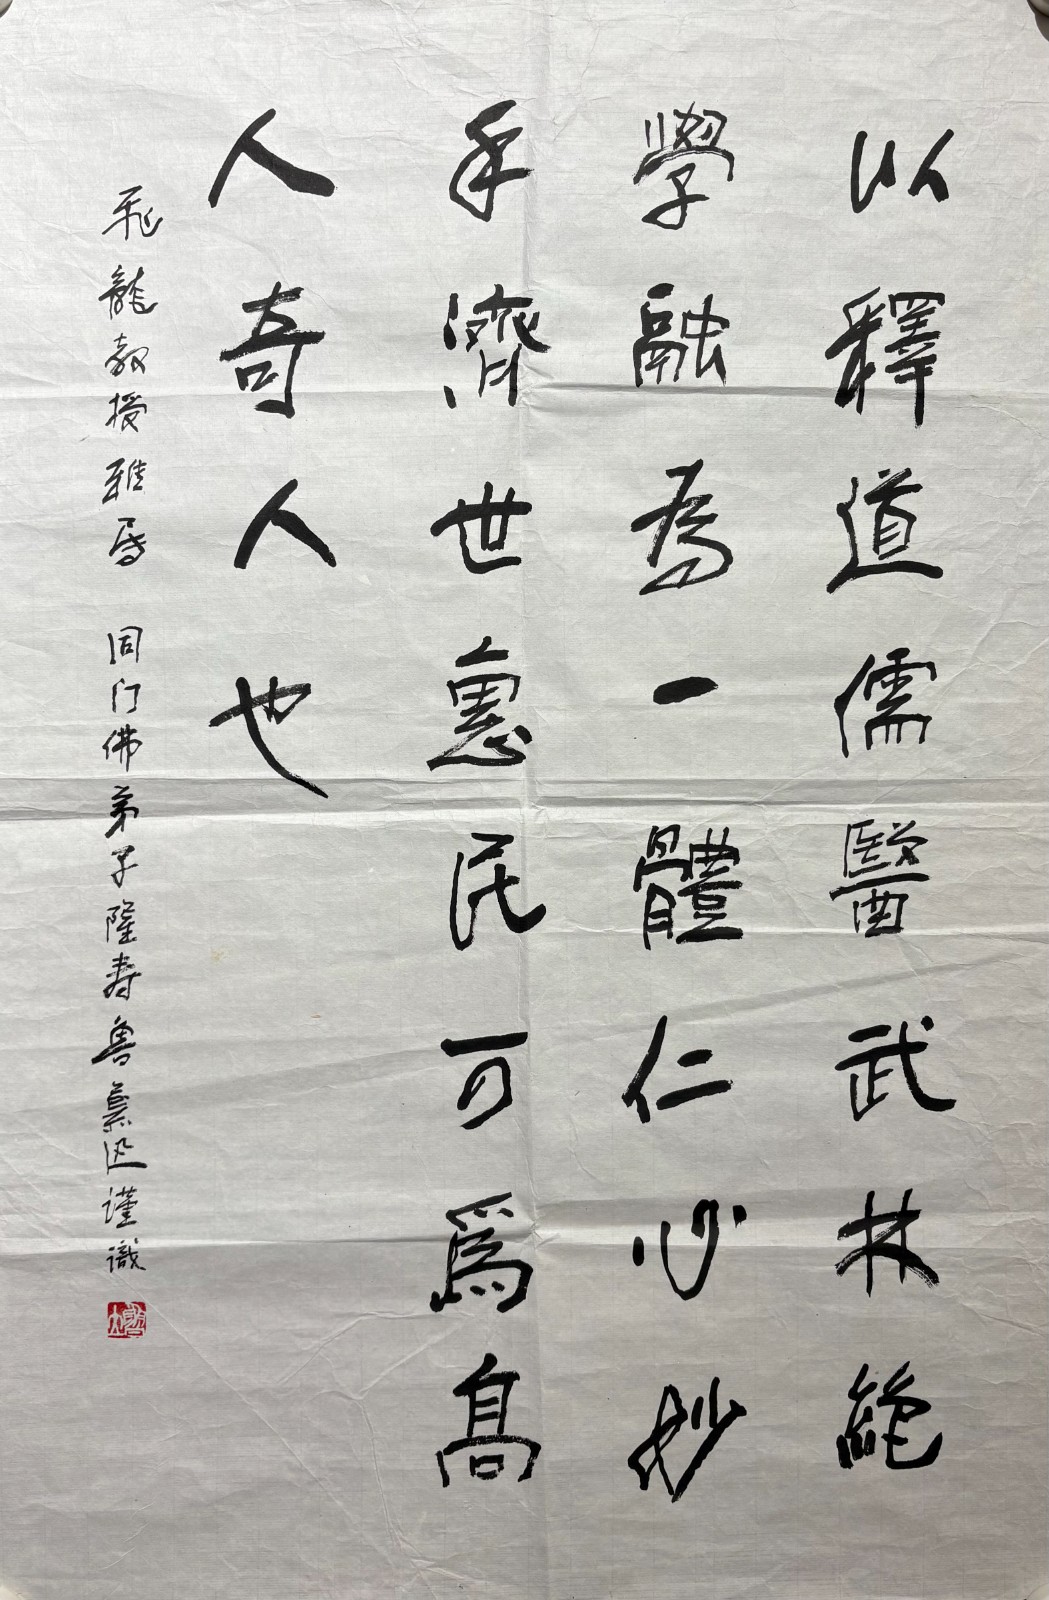 以釋道儒醫武林絕
學融為一體仁心妙
手濟世惠民可爲高
人奇人也
飛龍教授雅屬 同门佛弟子隆寿魯慕迅謹識